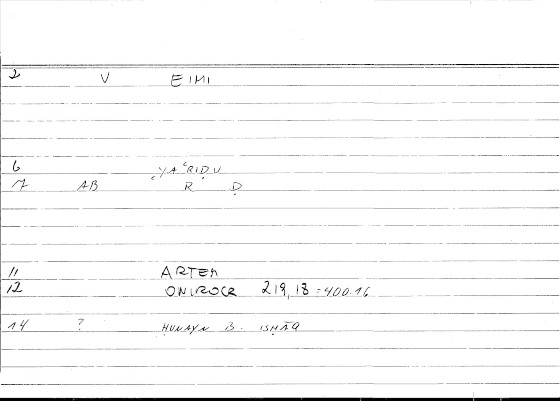 2 V EIMI
6 YAʿRIḌU
7 AB ʿ R Ḍ
11 ARTEM
12 ONIROCR 219,18 = 400.16
14 ? ḤUNAYN B. ISḤĀQ